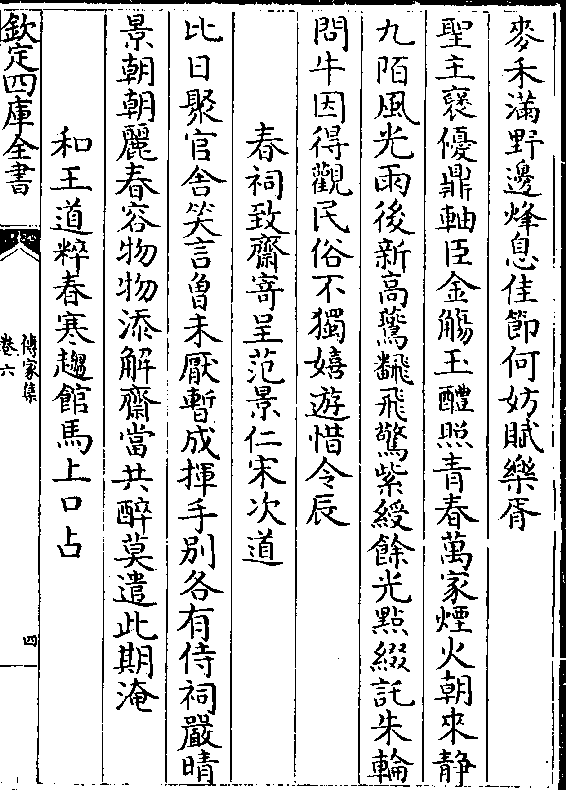 麥禾滿野邊烽息佳節何妨賦樂胥
聖主褒優鼎軸臣金觴玉醴照青春萬家煙火朝來靜
九陌風光雨後新高鶱翻飛驚紫綬餘光點綴託朱輪
問牛因得觀民俗不獨嬉遊惜令辰
春祠致齋寄呈范景仁宋次道
比日聚官舍笑言曾未厭暫成揮手别各有侍祠嚴晴
景朝朝麗春容物物添解齋當共醉莫遣此期淹
和王道粹春寒趨館馬上口占
欽定四庫全書
傳家集
卷六
四